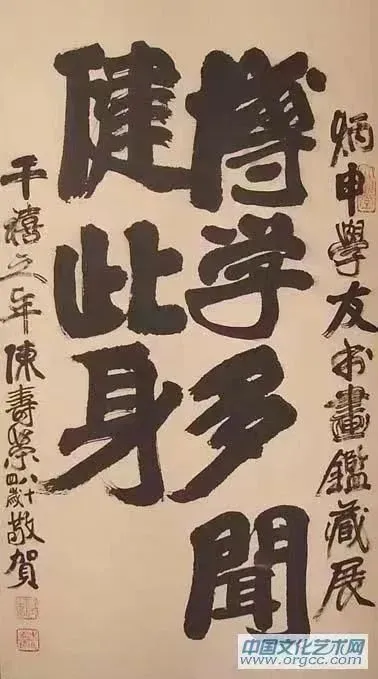 炳申學友书畫鑑藏展
博学多聞
健此身
千禧之年陳壽榮八十四歲敬賀
中国文化艺术网
www.orgcc.com